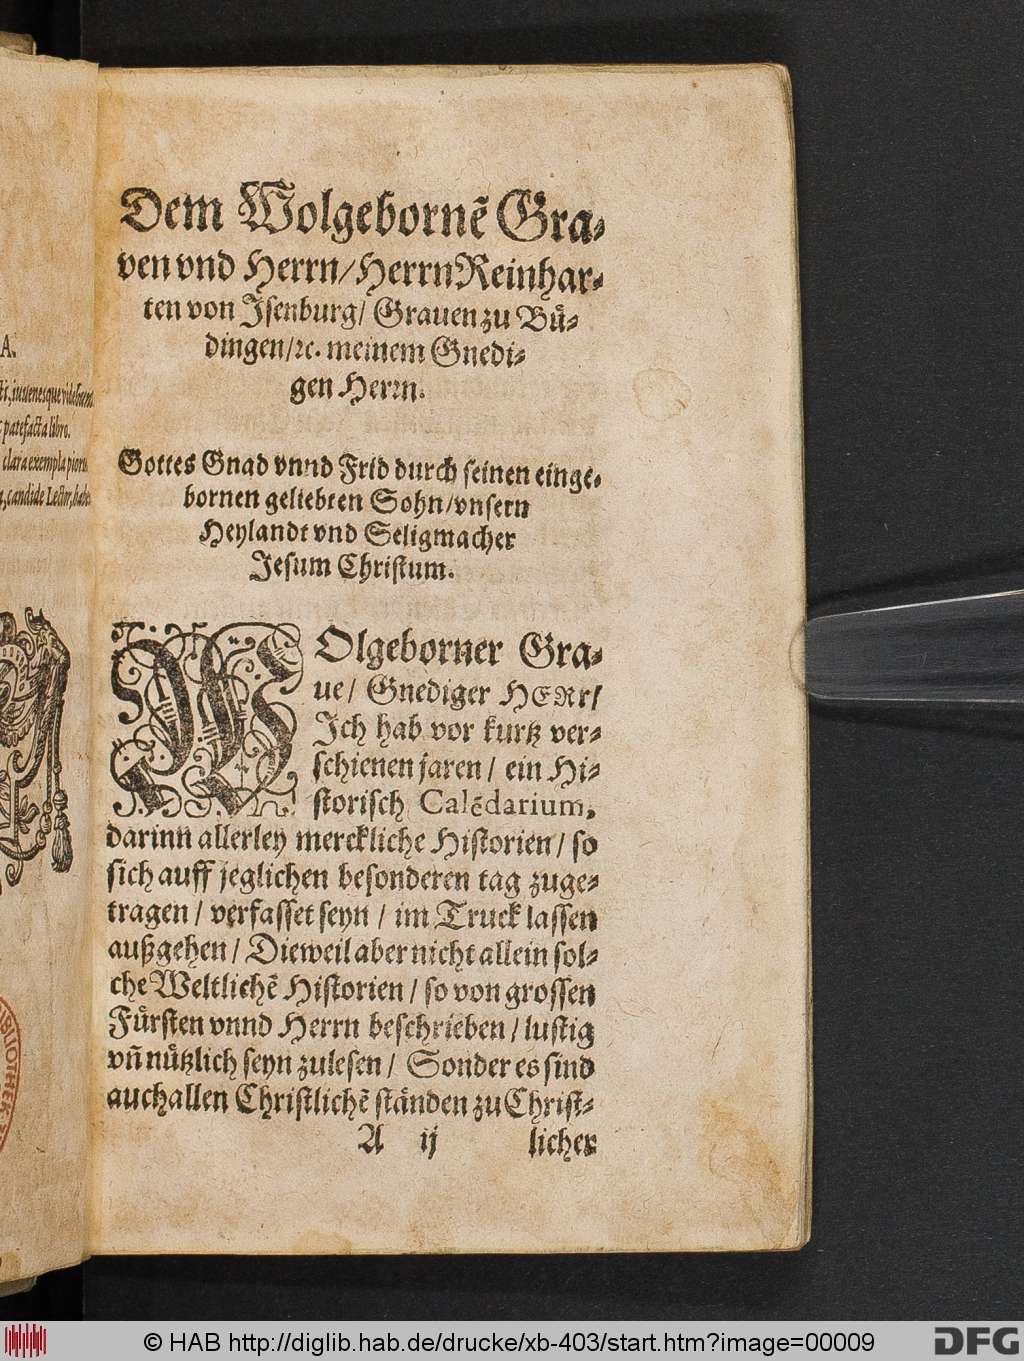 A.
patefacta libro.
clara exempla
candide Lector,
Dem Wolgebornẽ Gra⸗
ven vnd Herrn/ Herrn Reinhar⸗
ten von Jsenburg/ Grauen zu Buͤ⸗
dingen/ ꝛc. meinem Gnedi⸗
gen Herrn.
Gottes Gnad vnnd Frid durch seinen einge⸗
bornen geliebten Sohn/ vnsern
Heylandt vnd Seligmacher
Jesum Christum.
WOlgeborner Gra⸗
ue/ Gnediger HERr/
Jch hab vor kurtz ver⸗
schienen jaren/ ein Hi⸗
storisch Calẽdarium,
darinn allerley merckliche Historien/ so
sich auff jeglichen besonderen tag zuge⸗
tragen/ verfasset seyn/ im Truck lassen
außgehen/ Dieweil aber nicht allein sol⸗
che Weltlichẽ Historien/ so von grossen
Fuͤrsten vnnd Herrn beschrieben/ lustig
vñ nuͤtzlich seyn zulesen/ Sonder es sind
auch allen Christlichẽ staͤnden zu Christ⸗
A ij licher
BIBLIOTHEK
© HAB http://diglib.hab.de/drucke/xb-403/start.htm?image=00009
DFG